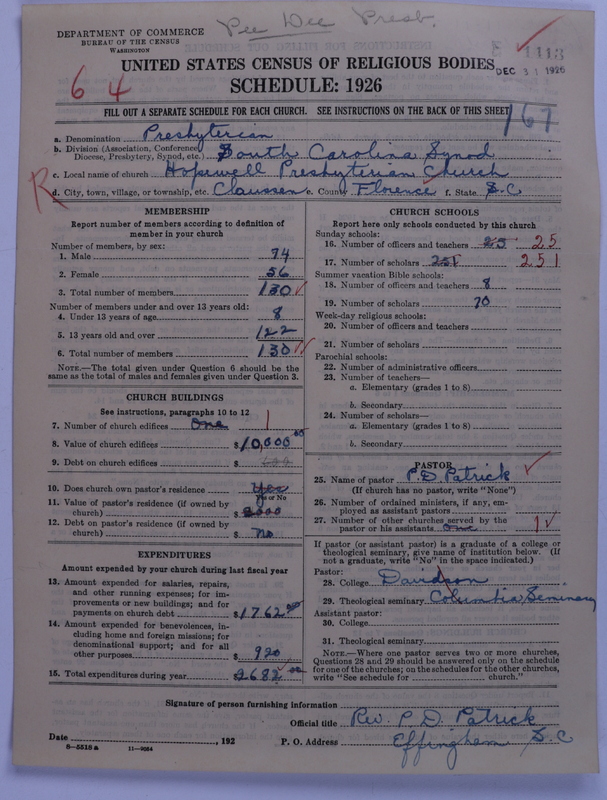 Pee Dee Presb.
DEPARTMENT OF COMMERCE
BUREAU OF THE CENSUS
WASHINGTON
DEC 31 1926
UNITED STATES CENSUS OF RELIGIOUS BODIES
SCHEDULE: 1926
6 4
FILL OUT A SEPARATE SCHEDULE FOR EACH CHURCH. SEE INSTRUCTIONS ON THE BACK OF THIS SHEET
167
a. Denomination Presbyterian
b. Division (Association, Conference, Diocese, Presbytery, Synod, etc.) South Carolina Synod
c. Local name of church Hopewell Presbyterian Church
R
d. City, town, village, or township, etc. Claussen e. County Florence f. State S.C
MEMBERSHIP
Report number of members according to definition of
member in your church
Number of members, by sex:
1. Male 74
2. Female 56
3. Total number of members 130
Number of members under and over 13 years old:
4. Under 13 years of age 8
5. 13 years old and over 122
6. Total number of members 130
NOTE.—The total given under Question 6 should be the
same as the total of males and females given under Question 3.
CHURCH BUILDINGS
See instructions, paragraphs 10 to 12
7. Number of church edifices One 1
8. Value of church edifices $10,000 00
9. Debt on church edifices $
10. Does church own pastor's residence Yes
Yes or No
11. Value of pastor's residence (if owned by
church) $ 3000
12. Debt on pastor's residence (if owned by
church) $ No
EXPENDITURES
Amount expended by your church during last fiscal year
13. Amount expended for salaries, repairs,
and other running expenses; for im-
provements or new buildings; and for
payments on church debt $1762
14. Amount expended for benevolences, in-
cluding home and foreign missions; for
denominational support; and for all
other purposes $ 920
15. Total expenditures during year $2682
CHURCH SCHOOLS
Report here only schools conducted by this church
Sunday schools:
16. Number of officers and teachers 25 25
17. Number of scholars 251 251
Summer vacation Bible schools:
18. Number of officers and teachers 8
19. Number of scholars 70
Week-day religious schools:
20. Number of officers and teachers
21. Number of scholars
Parochial schools:
22. Number of administrative officers
23. Number of teachers—
a. Elementary (grades 1 to 8)
b. Secondary
24. Number of scholars—
a. Elementary (grades 1 to 8)
b. Secondary
PASTOR
25. Name of pastor P. D. Patrick
(If church has no pastor, write "None")
26. Number of ordained ministers, if any, em-
ployed as assistant pastors
27. Number of other churches served by the
pastor or his assistants One 1
If pastor (or assistant pastor) is a graduate of a college or
theological seminary, give name of institution below. (If
not a graduate, write "No" in the space indicated.)
Pastor:
28. College Davidson
29. Theological seminary Columbia Seminary
Assistant pastor:
30. College
31. Theological seminary
NOTE.—Where one pastor serves two or more churches,
Questions 28 and 29 should be answered only on the schedule
for one of the churches; on the schedules for the other churches,
write "See schedule for church."
Signature of person furnishing information
Official title Rev. P. D. Patrick
Date , 192 P. O. Address Effingham S.C
8-5518 a 11-9054